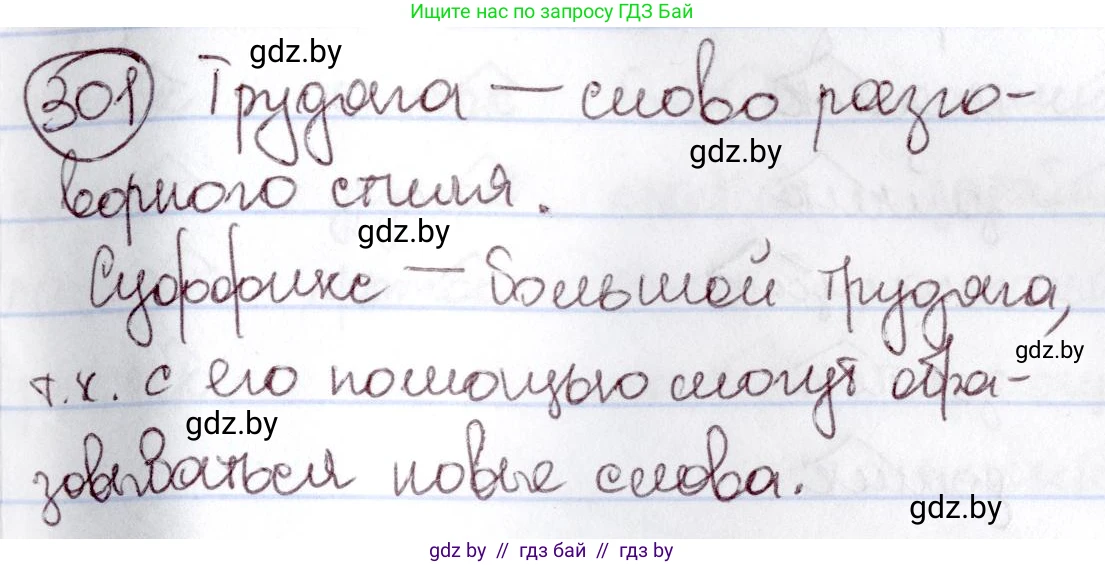 Ищите нас по запросу ГДЗ Бай
gdz.by
301 Трудяга — слово разго-
gdz.by
ворного стиля.
gdz.by
Суффикс — большой трудяга,
gdz.by
т.к. с его помощью могут обра-
gdz.by
зовываться новые слова.
gdz.by
gdz by // гдз бай // гдз by